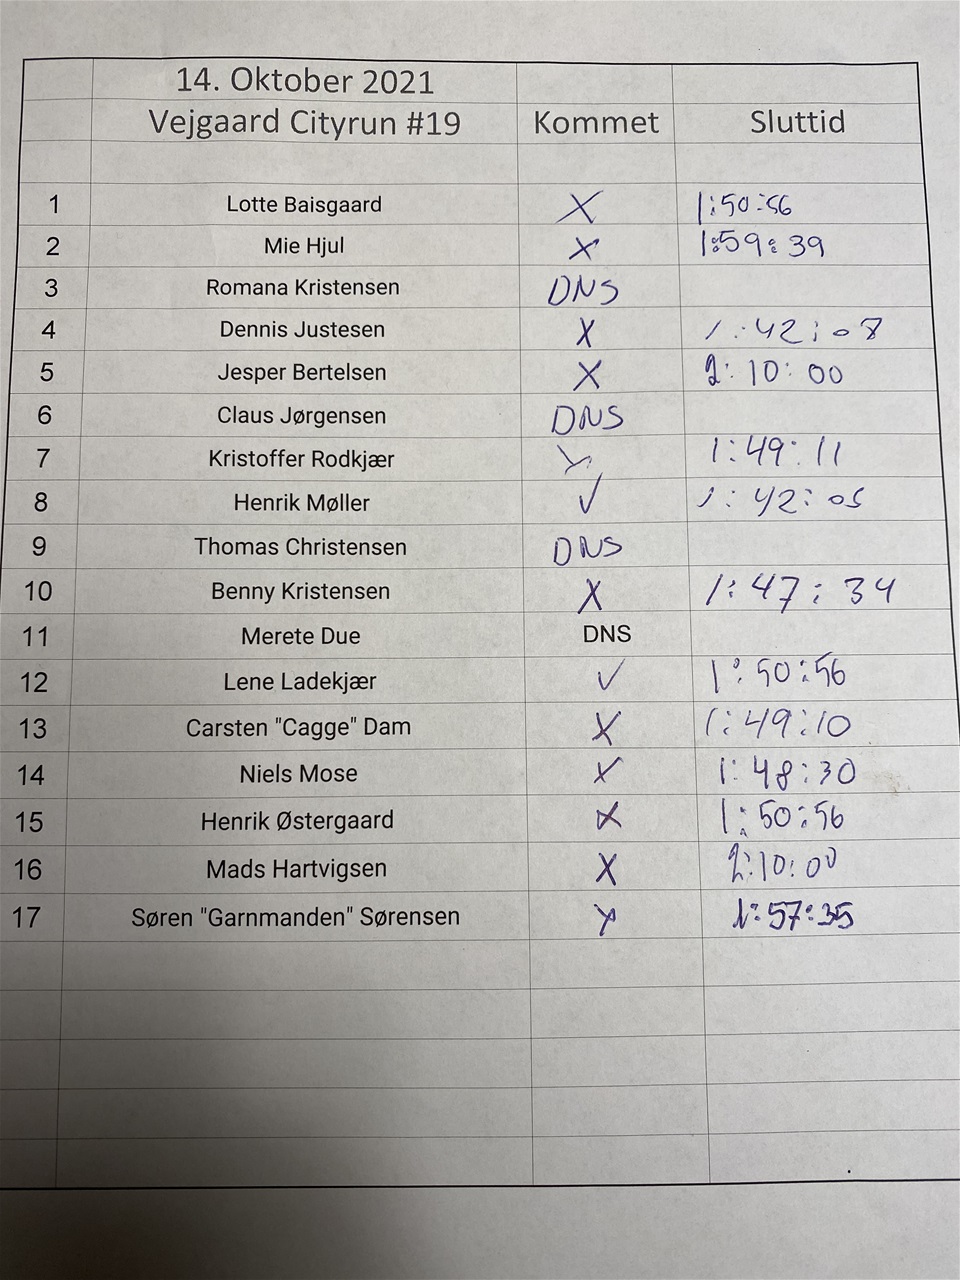 14. Oktober 2021
Vejgaard Cityrun #19 Kommet Sluttid
1 Lotte Baisgaard X 1:50:56
2 Mie Hjul X 1:59:39
3 Romana Kristensen DNS
4 Dennis Justesen X 1:42:08
5 Jesper Bertelsen X 2:10:00
6 Claus Jørgensen DNS
7 Kristoffer Rodkjær X 1:49:11
8 Henrik Møller ✓ 1:42:05
9 Thomas Christensen DNS
10 Benny Kristensen X 1:47:34
11 Merete Due DNS
12 Lene Ladekjær ✓ 1:50:56
13 Carsten "Cagge" Dam X 1:49:10
14 Niels Mose X 1:48:30
15 Henrik Østergaard X 1:50:56
16 Mads Hartvigsen X 2:10:00
17 Søren "Garnmanden" Sørensen X 1:57:35